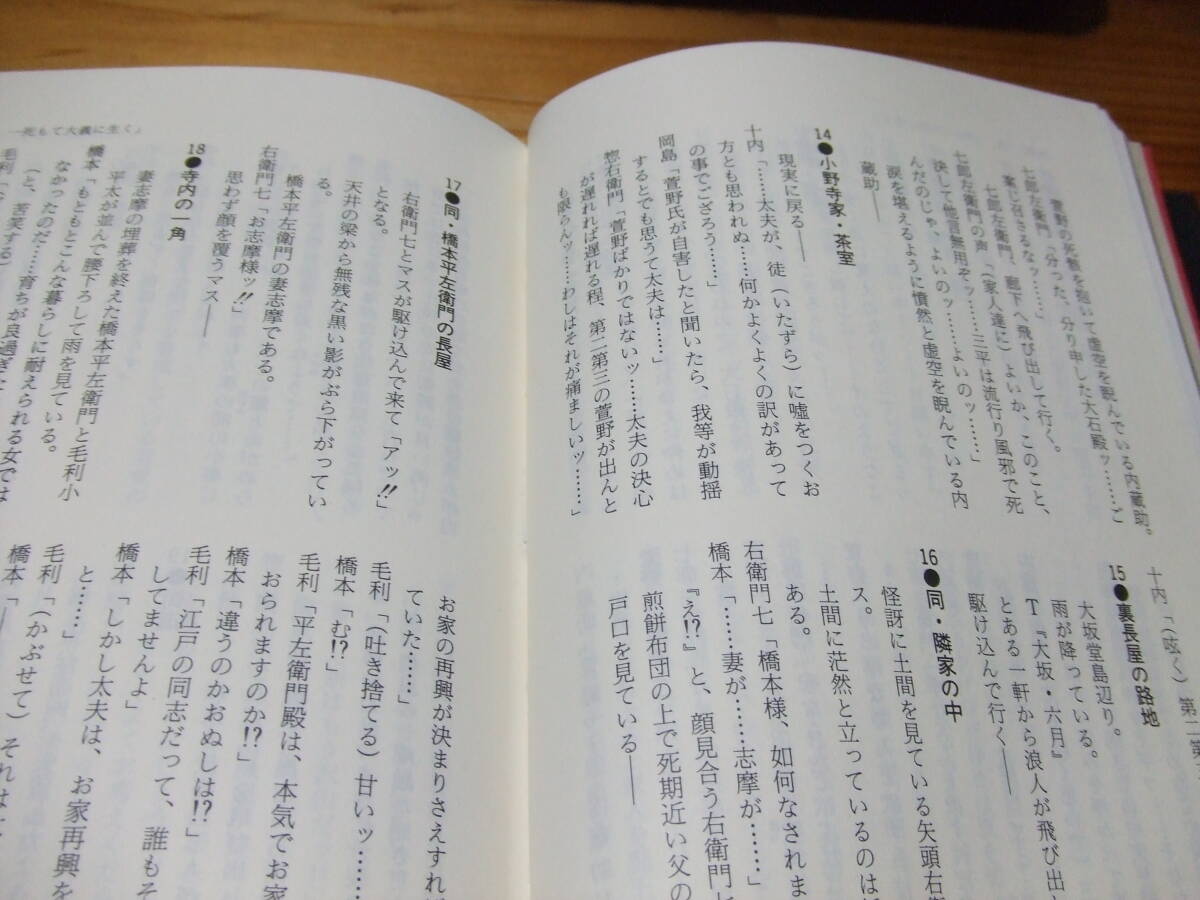 萱野の死骸を抱いて虚空を睨んでいる内蔵助。
七郎左衛門「分った、分り申した大石殿ッ……ご
案じ召さるなッ……」
七郎左衛門、廊下へ飛び出して行く。
七郎左衛門の声「(家人達に)よいか、このこと、
決して他言無用ぞッ……三平は流行り風邪で死
んだのじゃ、よいのッ……よいのッ……」
涙を堪えるように憤然と虚空を睨んでいる内
蔵助――
14●小野寺家・茶室
現実に戻る――
十内「……太夫が、徒(いたずら)に嘘をつくお
方とも思われぬ……何かよくよくの訳があって
の事でござろう……」
岡島「萱野氏が自害したと聞いたら、我等が動揺
するとでも思うて太夫は……」
惣右衛門「萱野ばかりではないッ……太夫の決心
が遅れれば遅れる程、第二第三の萱野が出んと
も限らんッ……わしはそれが痛ましいッ……」
十内「(呟く)第二第
15●裏長屋の路地
大坂堂島辺り。
雨が降っている。
T『大坂・六月』
とある一軒から浪人が飛び出
駆け込んで行く――
16●同・隣家の中
怪訝に土間を見ている矢頭右衛
ス。
土間に茫然と立っているのは
ある。
右衛門七「橋本様、如何なされま
橋本「……妻が……志摩が……」
『え!?』と、顔見合う右衛門七
煎餅布団の上で死期近い父の
戸口を見ている――
一死もて大義に生く」
17●同・橋本平左衛門の長屋
右衛門七とマスが駆け込んで来て「アッ!!」
となる。
天井の梁から無残な黒い影がぶら下がってい
る。
橋本平左衛門の妻志摩である。
右衛門七「お志摩様ッ!!」
思わず顔を覆うマス――
18●寺内の一角
妻志摩の埋葬を終えた橋本平左衛門と毛利小
平太が並んで腰下ろして雨を見ている。
橋本「もともとこんな暮らしに耐えられる女では
なかったのだ……育ちが良過ぎた
(と、苦笑する)
毛利「
お家の再興が決まりさえすれ
ていた……」
毛利「(吐き捨てる)甘いッ……
橋本「む!?」
毛利「平左衛門殿は、本気でお家
おられますのか!?」
橋本「違うのかおぬしは!?」
毛利「江戸の同志だって、誰もそ
してませんよ」
橋本「しかし太夫は、お家再興を
と……」
毛利「(かぶせて)それは
橋本「――